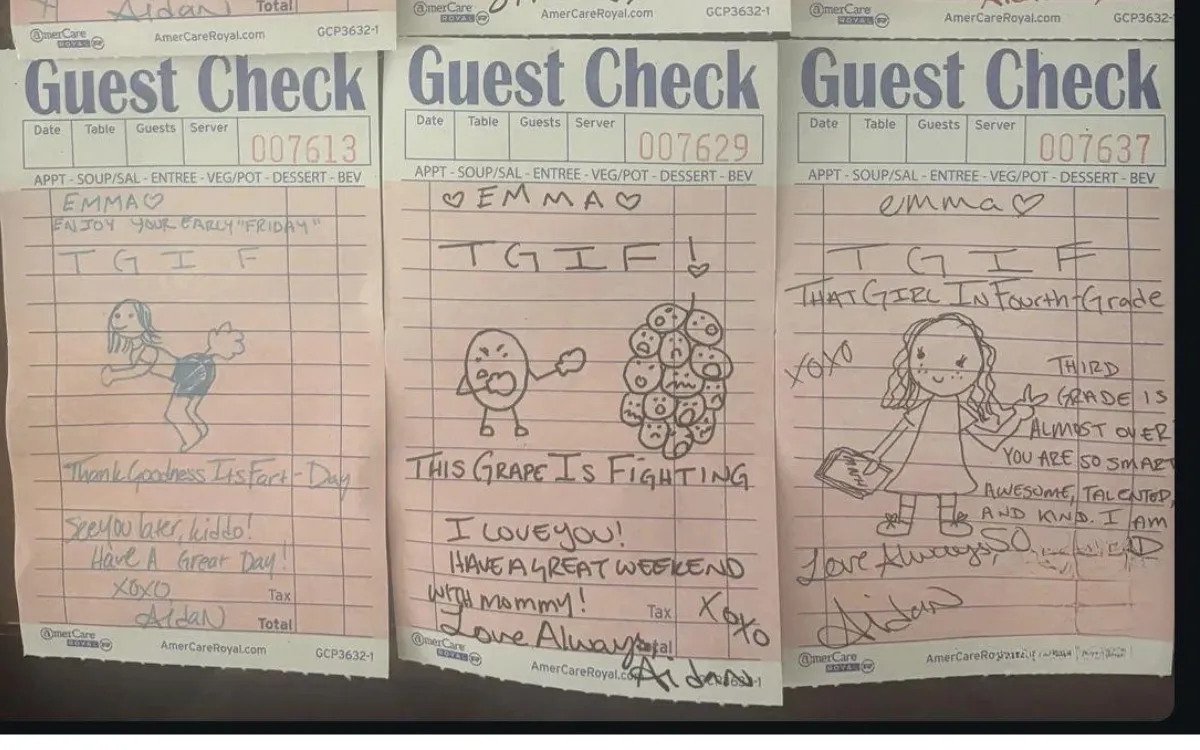 Aidan
Total
@merCare
ROYAL
AmerCareRoyal.com
GCP3632-1
Guest Check
Date Table Guests Server
007613
APPT - SOUP/SAL - ENTREE - VEG/POT - DESSERT - BEV
EMMA♡
ENJOY YOUR EARLY "FRIDAY"
T G I F
Thank Goodness Its Fart-Day
See you later, kiddo!
Have A Great Day!
XOXO,
Tax
Aidan
Total
@merCare
ROYAL
AmerCareRoyal.com
GCP3632-1
@merCare
ROYAL
AmerCareRoyal.com
GCP3632-1
Guest Check
Date Table Guests Server
007629
APPT - SOUP/SAL - ENTREE - VEG/POT - DESSERT - BEV
♡EMMA♡
TGIF!
THIS GRAPE IS FIGHTING
I LOVE YOU!
HAVE A GREAT WEEKEND
WITH MOMMY!
Tax
XOXO
Love Always
Total
Aidan
@merCare
ROYAL
AmerCareRoyal.com
@merCare
ROYAL
AmerCareRoyal.com
GCP3632-1
Guest Check
Date Table Guests Server
007637
APPT - SOUP/SAL - ENTREE - VEG/POT - DESSERT - BEV
emma♡
T G I F
THAT GIRL IN Fourth-Grade
XOXO
THIRD
GRADE IS
ALMOST OVER
YOU ARE SO SMART
AWESOME, TALENTED,
AND KIND. I AM
SO
Love Always,
Aidan
@merCare
ROYAL